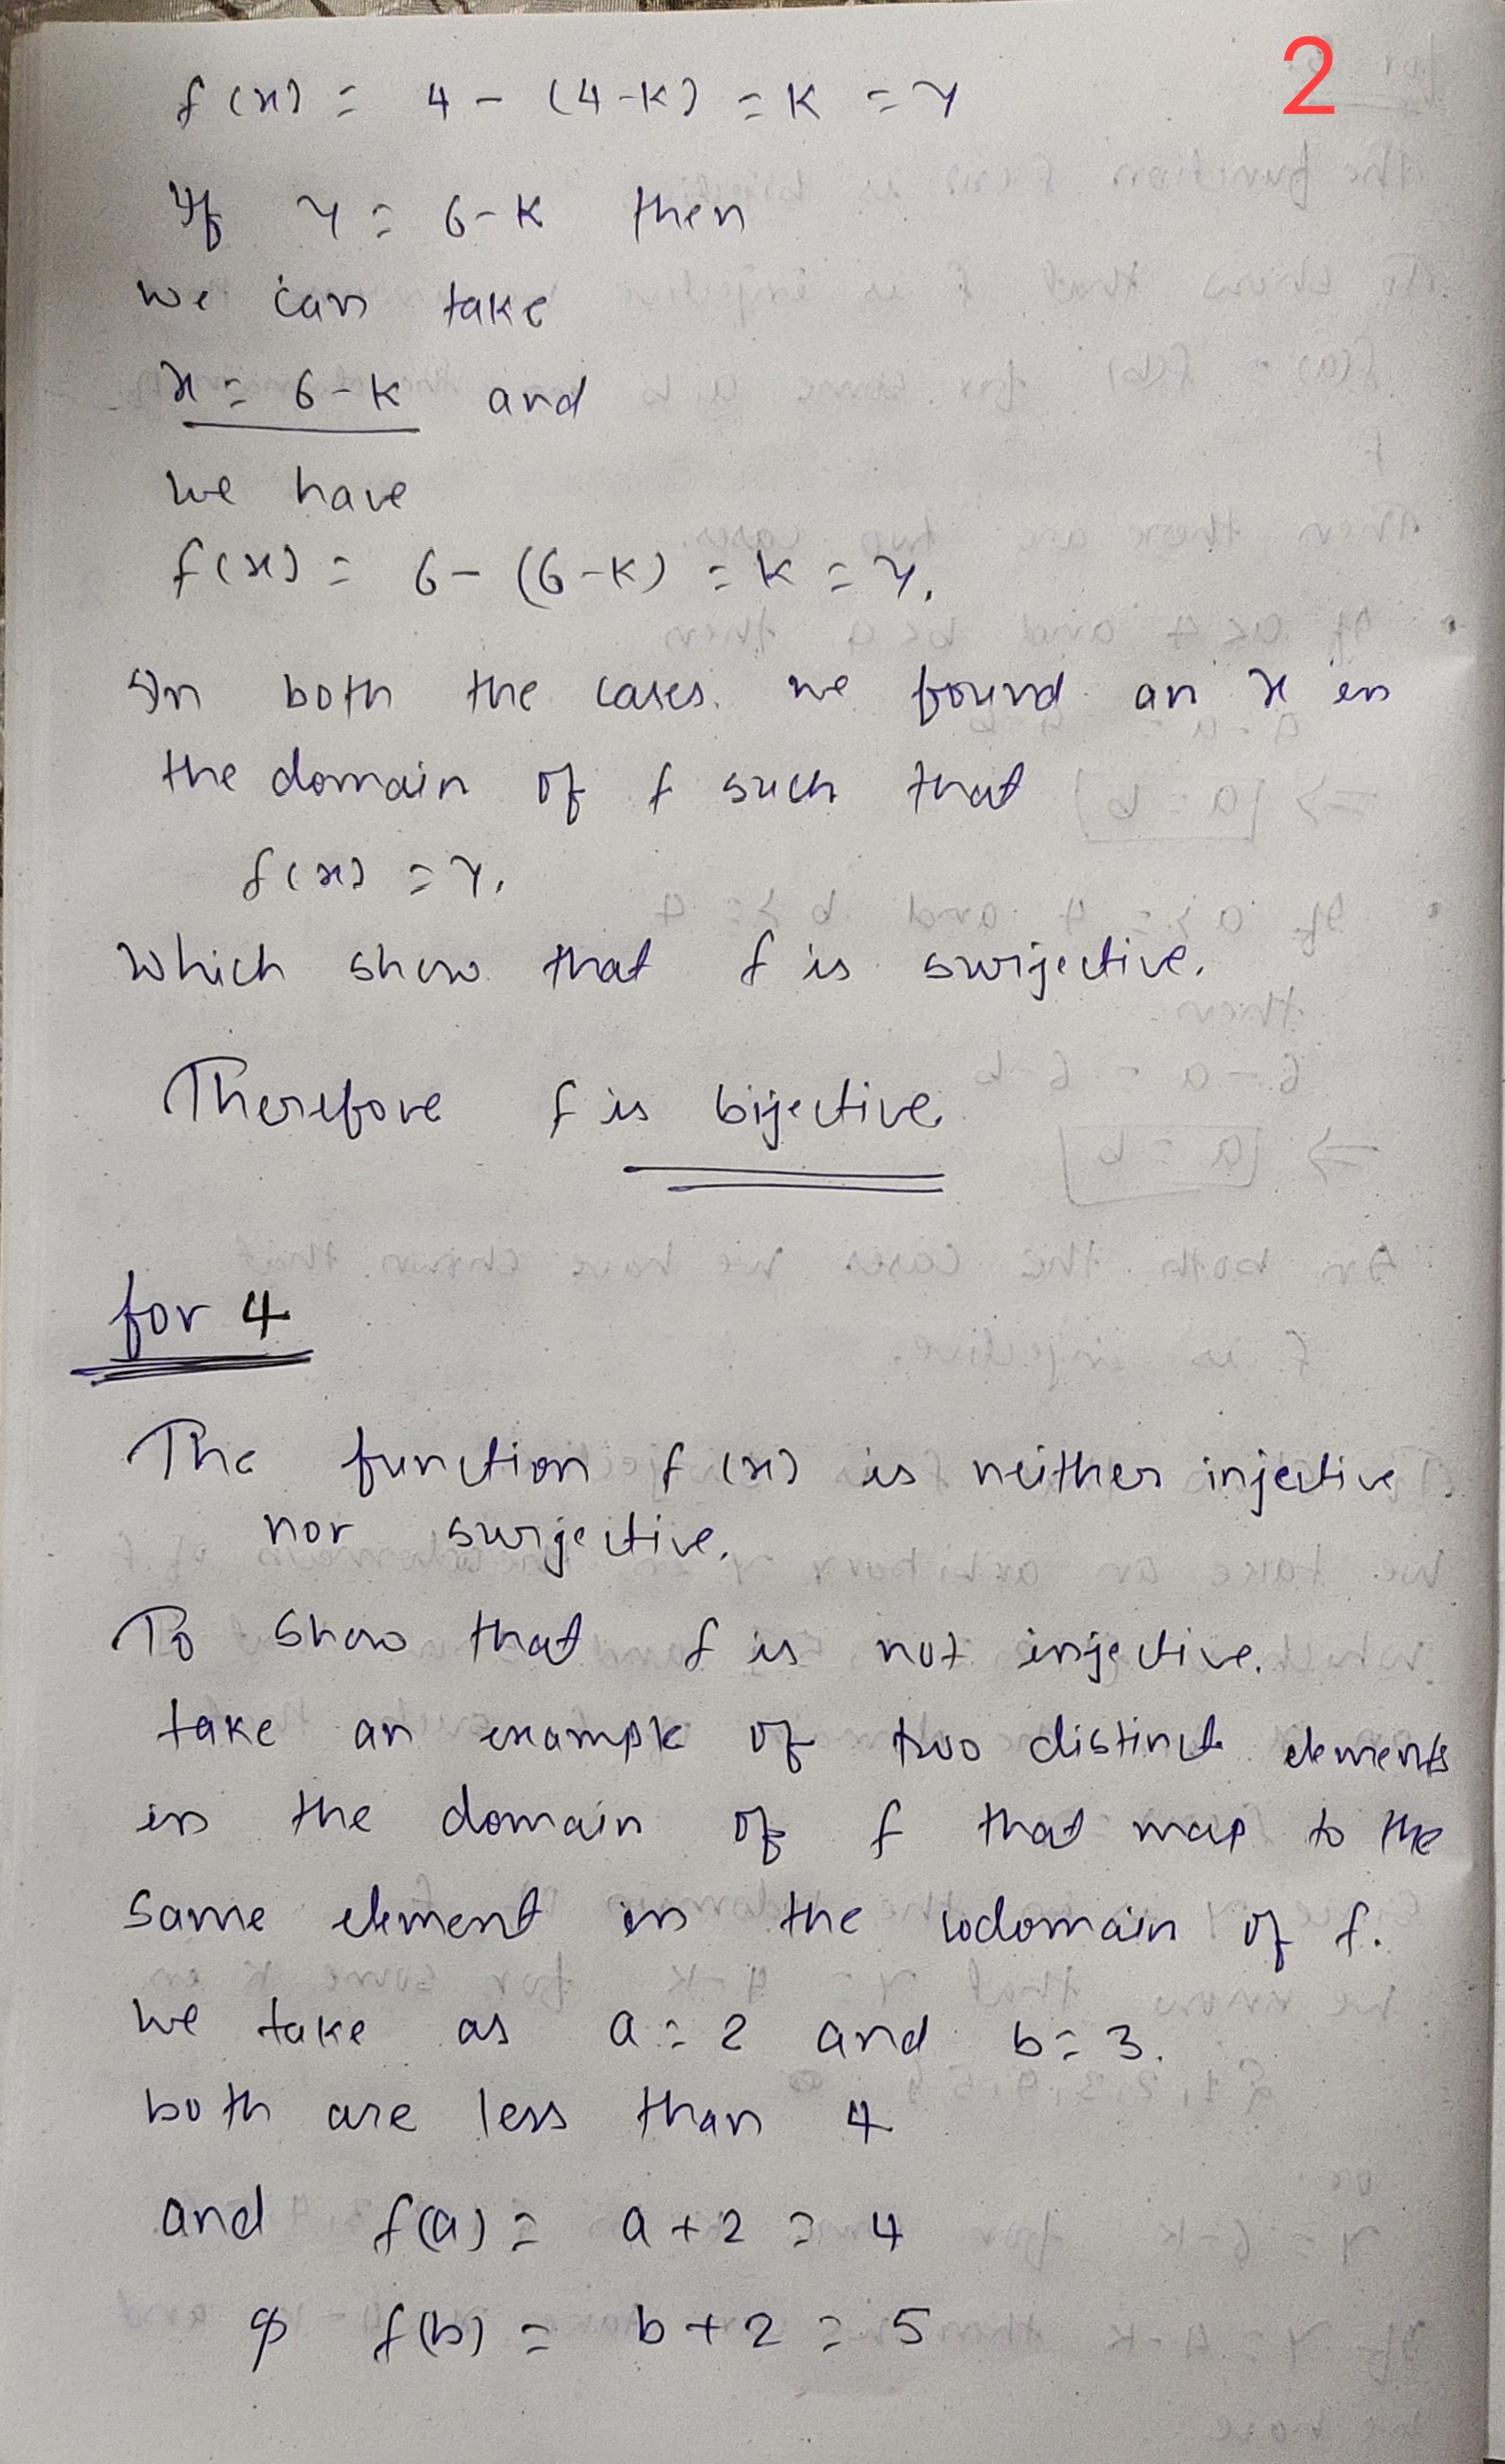 2
f(x) = 4 - (4-K) = K = y
If y = 6-K then
we can take
x = 6-K and
we have
f(x) = 6 - (6-K) = K = y.
In both the cases we found an x in
the domain of f such that
f(x) = y.
Which show that f is surjective.
Therefore f is bijective.
for 4
The function f(x) is neither injective
nor surjective.
To show that f is not injective.
take an example of two distinct elements
in the domain of f that map to the
same element in the codomain of f.
we take as a = 2 and b = 3.
both are less than 4
and f(a) = a+2 = 4
& f(b) = b+2 = 5